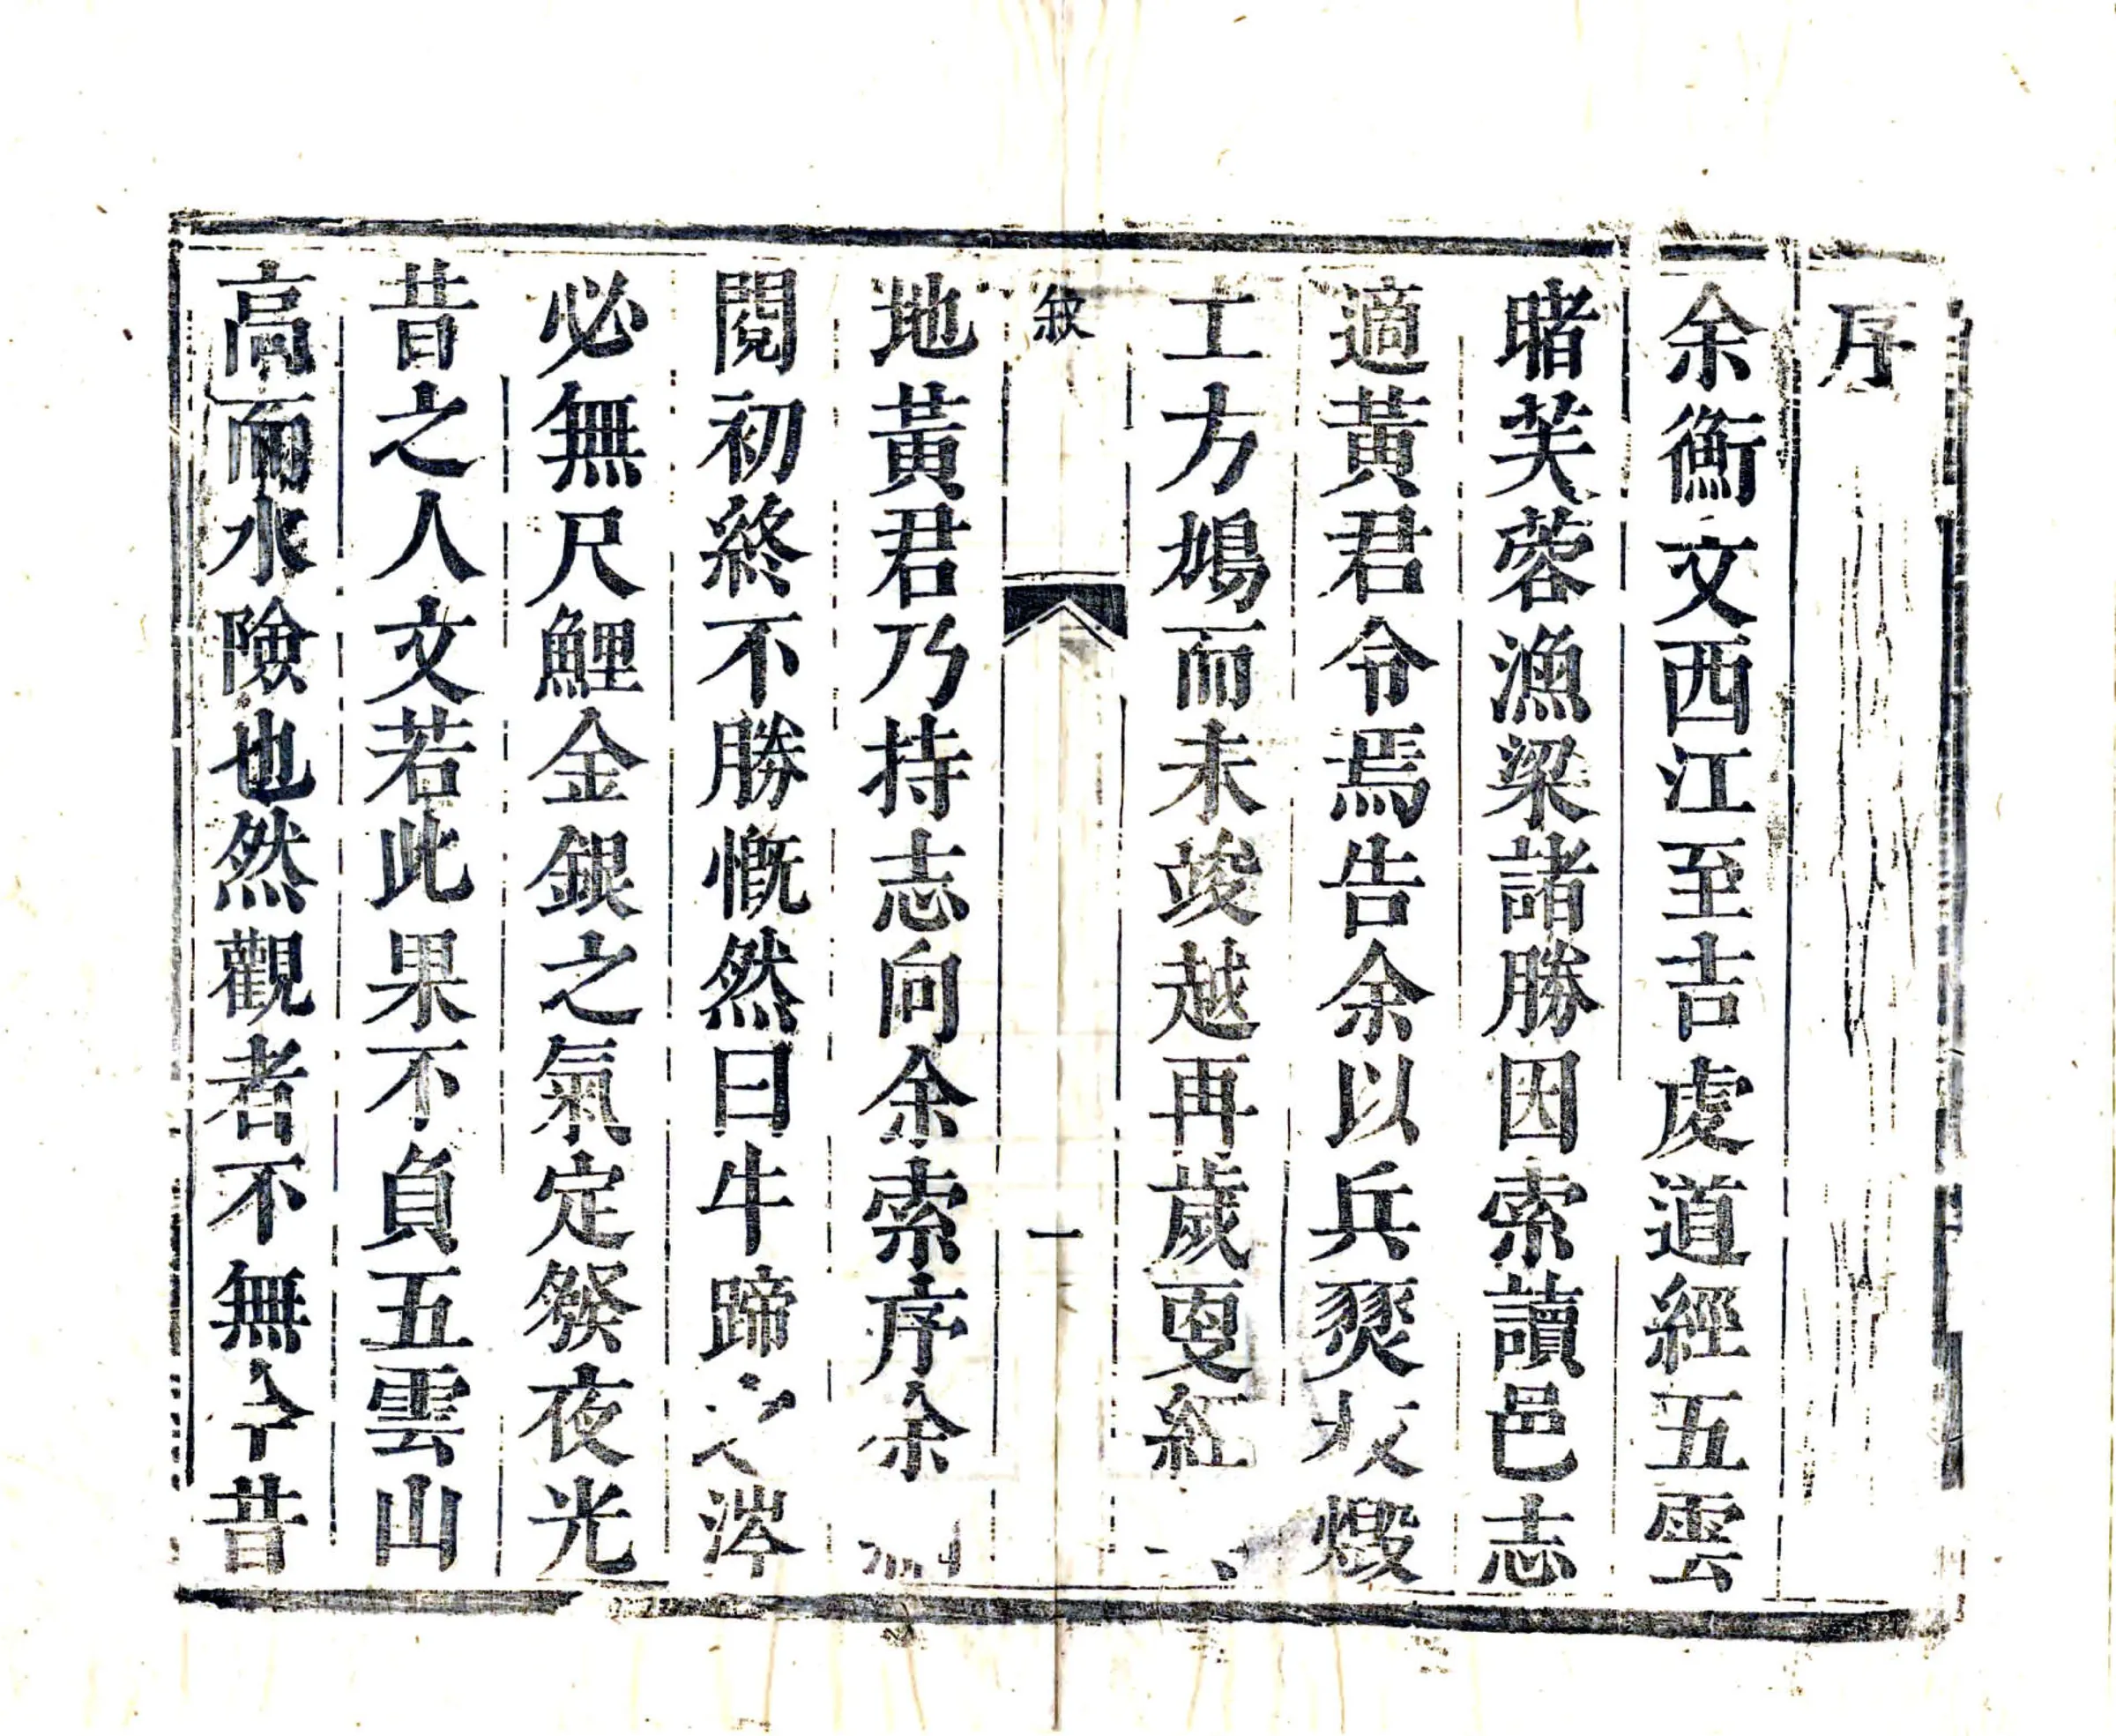 序
余衡文西江至吉處道經五雲
睹芙蓉漁梁諸勝因索讀邑志
適黃君令焉告余以兵燹燬
工方鳩而未竣越再歲更紅
叙 一
地黃君乃持志向余索序余
閱初終不勝慨然曰牛蹄之涔
必無尺鯉金銀之氣定發夜光
昔之人文若此果不負五雲山
高而水險也然觀者不無今昔